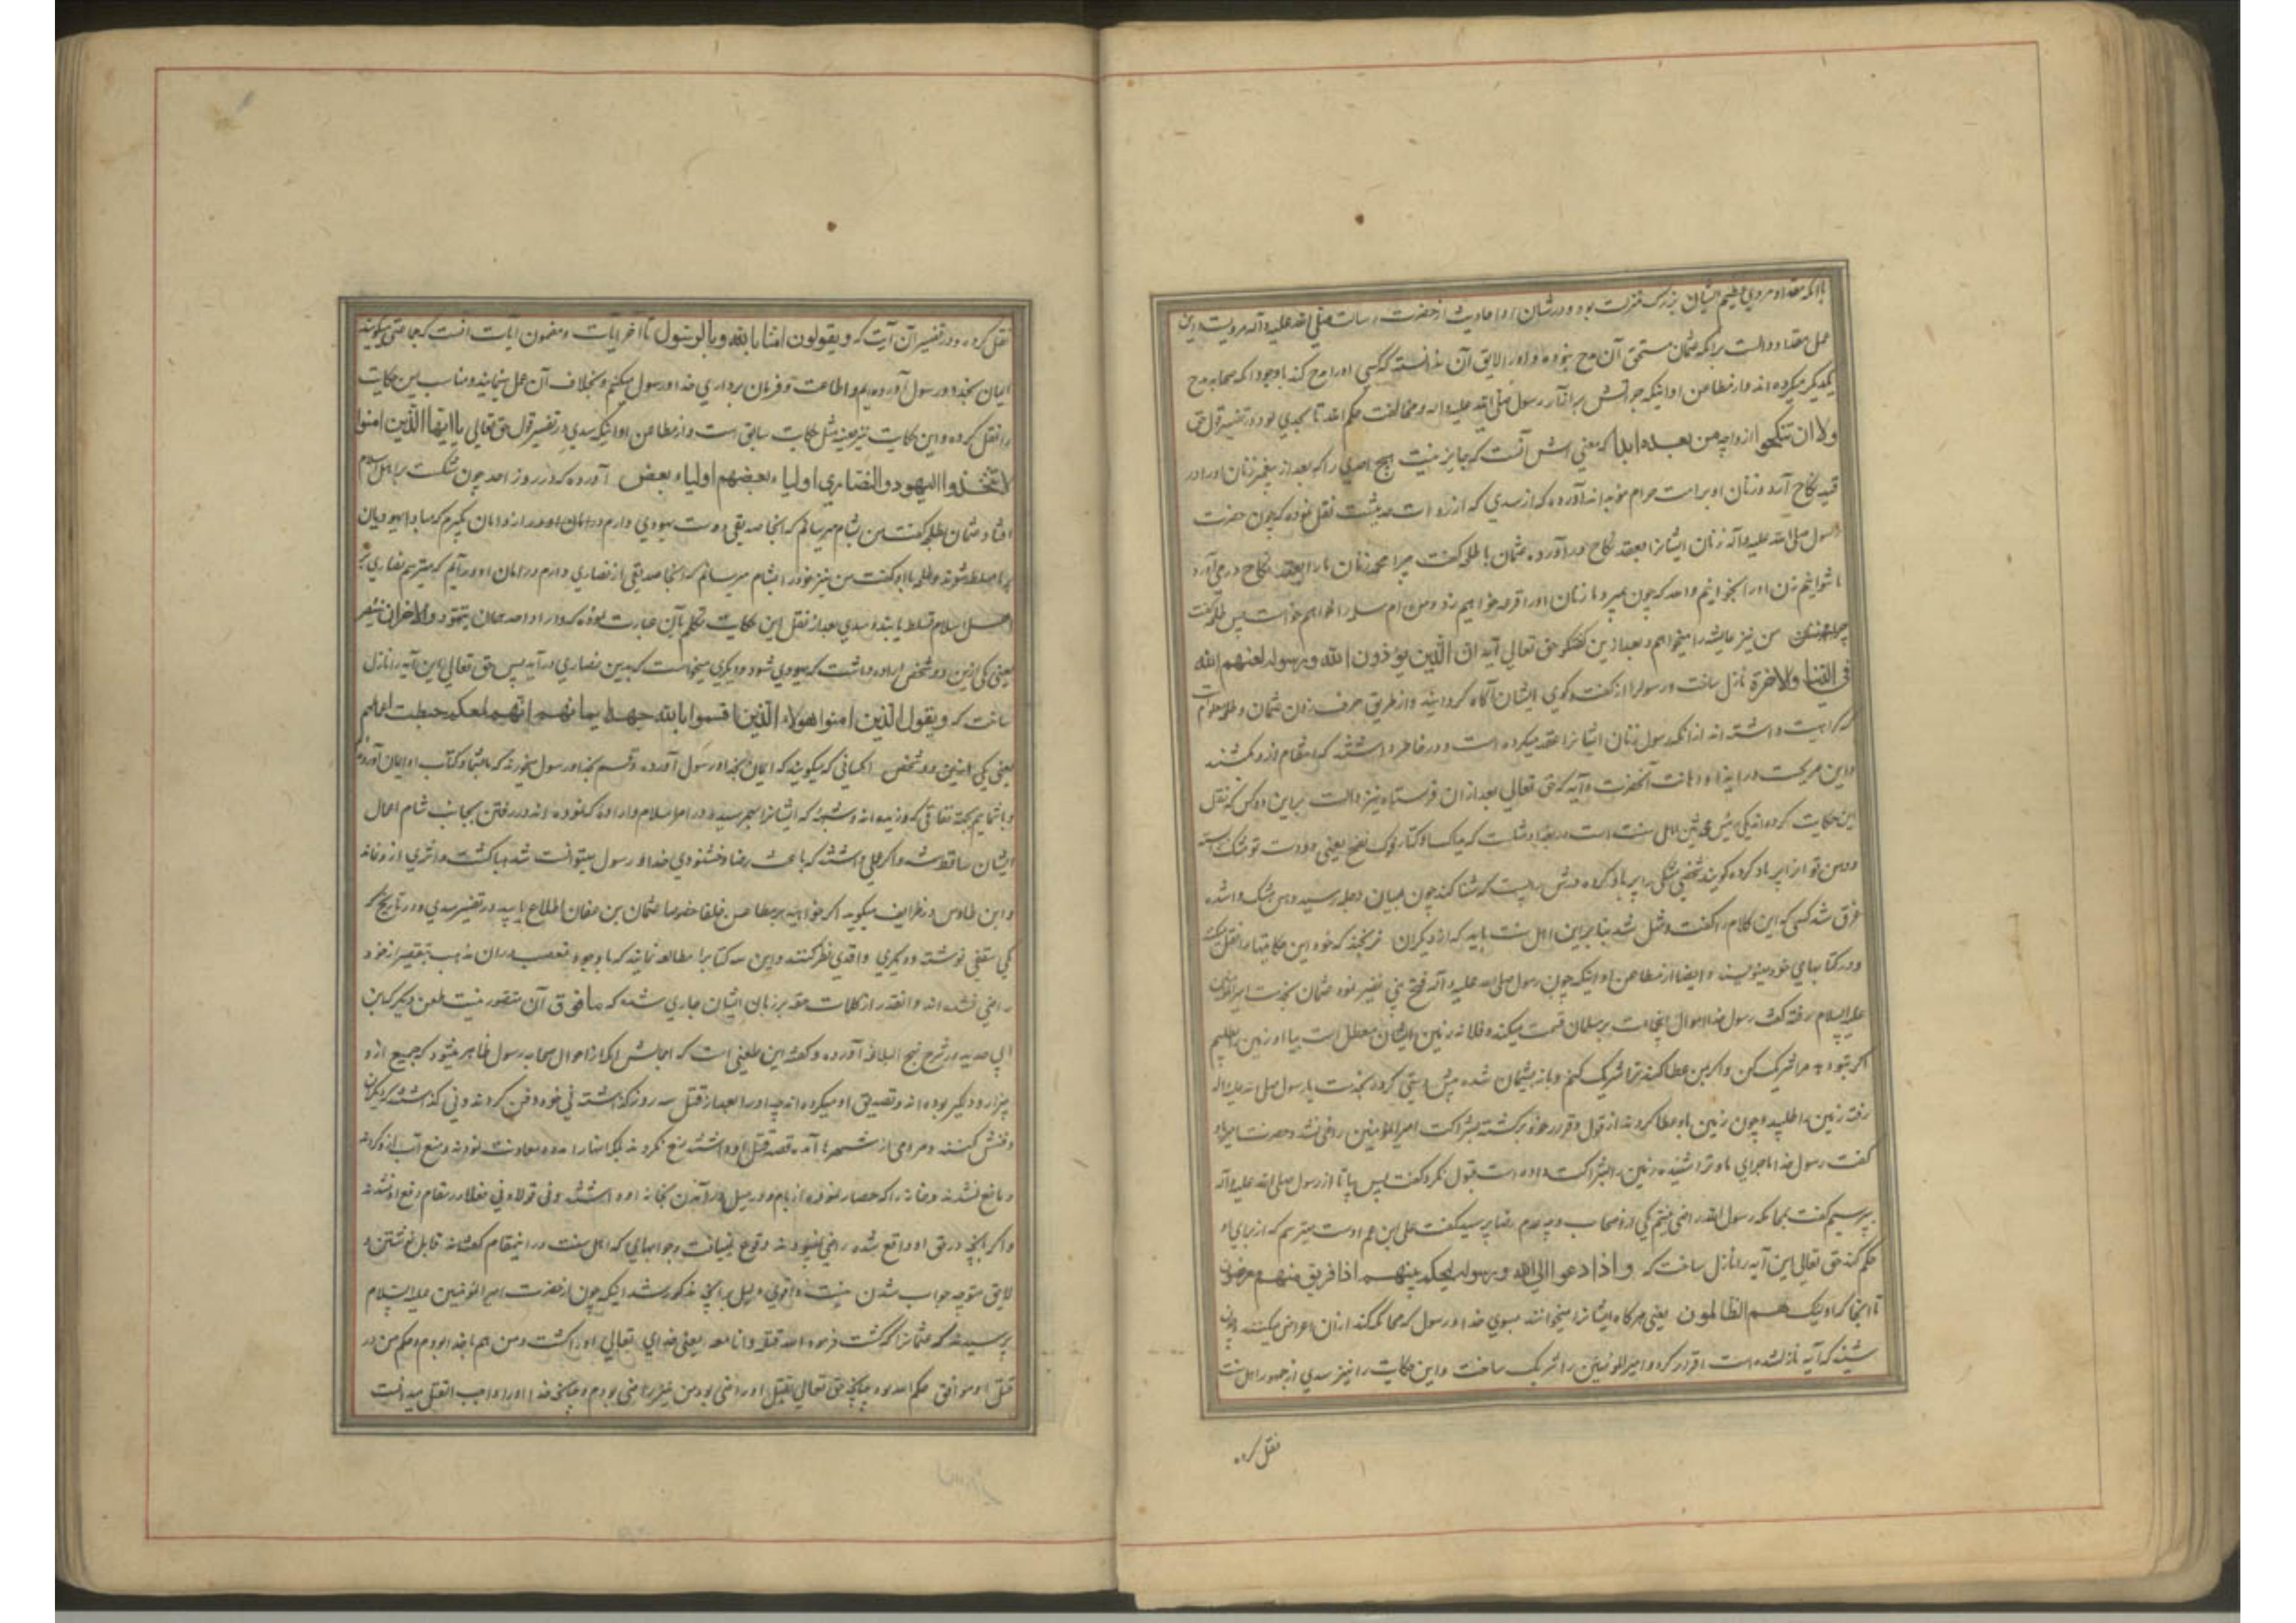 با آنکه مقداد مردی عظیم الشان بزرک منزلت بود و در شان او احادیث از حضرت رسالت صلی الله علیه و آله مرویست و این
عمل مقداد دالست برانکه عثمان مستحق آن مدح نبوده و او را لایق آن ندانسته که کسی او را مدح کند با وجود انکه صحابه مدح
یکدیکر میکرده اند و از مطاعن او اینکه جراتش بر انکار رسول صلی الله علیه و اله و مخالفت حکم الله تا بحدی بود و در تفسیر قول حق
ولا ان تنکحوا ازواجه من بعده ابدا که معنی اش آنست که جایز نیست هیچ احدی را که بعد از پیغمبر زنان او را در
قید نکاح آرد و زنان او بر امت حرام مؤبد اند آورده که از سدی که از روات حدیثست نقل نموده که چون حضرت
رسول صلی الله علیه و آله زنان ایشانرا بعقد نکاح در آورده عثمان با طلحه کفت چرا محمد زنان ما را بعقد نکاح در می آورد
ما نتوانیم زن او را بخوایم والله که چون بمیرد ما زنان او را قرعه خواهیم زد و من ام سلمه را خواهم خواست پس طلحه کفت
من نیز عایشه را میخواهم و بعد ازین کفتکو حق تعالی آیه ان الذین یؤذون الله و رسوله لعنهم الله
فی الدنیا والاخرة نازل ساخت و رسولرا از کفت و کوی ایشان آکاه کردانید و از طریق حرف زدن عثمان و طلحه معلوم است
که کراهیت داشته اند از آنکه رسول زنان ایشانرا عقد میکرده است و در خاطر داشتند که انتقام ازو بکشند
و این صریحست در ایذا و اهانت آنحضرت و آیه که حق تعالی بعد از ان فرستاده نیز دالست بر این و کس که نقل
این حکایت کرده اند یکی رئیس محدثین اهل سنت است
و دهن تو از آن پر باد کرده کویند شخصی مشکی را پر باد کرده که شنا کند چون بمیان دجله رسید دهن مشک وا شده
غرق شد کسی که این کلام را کفت و مثل شد بنابر این اهل سنت باید که از دیکران نرنجند که خود این حکایتها را نقل میکنند
و در کتابهای خود مینویسند و ایضا از مطاعن او اینکه چون رسول صلی الله علیه و آله فتح بنی نضیر نمود عثمان بخدمت امیر المؤمنین
علیه السلام رفته کفت رسول خدا اموال بر مسلمانان قسمت میکند و فلانه زمین ایشان معطل است بیا او زمین بطلبیم
اکر بتو دهد مرا شریک کن و اکر بمن عطا کند ترا شریک کنم و باز پشیمان شده پیش دستی کرده بخدمت رسول صلی الله علیه و اله
رفته زمین را طلبید و چون زمین باو عطا کردند از قول و قرار خود برکشته بشراکت امیر المؤمنین راضی نشد و حضرت امیر باو
کفت رسول خدا ماجرای ما و ترا شنیده زمین را بشراکت داده است قبول نکرد کفت پس بیا تا از رسول صلی الله علیه و آله
بپرسیم کفت بمحاکمه رسول الله راضی نیستم یکی از اصحاب وجه عدم رضا پرسید کفت علی ابن عم اوست میترسم که از برای او
حکم کند حق تعالی این آیه را نازل ساخت که و اذا دعوا الی الله و رسوله لیحکم بینهم اذا فریق منهم معرضون
تا انجا که اولئک هم الظالمون یعنی هرکاه ایشانرا میخوانند بسوی خدا و رسول که محاکمه کند از ان اعراض میکنند و چون
شنید که آیه نازل شده است اقرار کرد و امیر المؤمنین را شریک ساخت و این حکایت را نیز سدی از جمهور اهل سنت
نقل کرده
نقل کرده و در تفسیر آن آیت که و یقولون امنا بالله و بالرسول تا آخر آیات و مضمون آیات انست که جماعتی میکویند
ایمان بخدا و رسول آورده ایم و اطاعت و فرمان برداری خدا و رسول میکنیم و بخلاف آن عمل مینمایند و مناسب این حکایت
را نقل کرده و این حکایت نیز بعینه مثل حکایت سابق است و از مطاعن او اینکه سدی در تفسیر قول حق تعالی یا ایها الذین امنوا
لا تتخذوا الیهود و النصاری اولیاء بعضهم اولیاء بعض آورده که در روز احد چون شکست بر اهل اسلام
افتاد عثمان بطلحه کفت من بشام میرسانم که انجا صدیقی دوست یهودی دارم و امان او در ازو امان بکیرم که مبادا یهودیان
بر ما مسلط شوند و طلحه با او کفت من نیز خود را بشام میرسانم که انجا صدیقی از نصاری دارم در امان او در آیم که میترسم نصاری بر
اهل اسلام تسلط یابند و سدی بعد از نقل این حکایت تکلم باین عبارت نموده که و اراد احدهمان یتهود والاخران یتنصر
یعنی یکی ازین دو شخص اراده داشت که یهودی شود و دیکری میخواست که بدین نصاری در آید پس حق تعالی این آیه را نازل
ساخت که و یقول الذین امنوا اهولاء الذین اقسموا بالله جهد ایمانهم انهم لمعکم حبطت اعمالهم
یعنی یکی ازین دو شخص انکسانی که میکویند که ایمان بخدا و رسول آورده و قسم بخدا و رسول میخورند که ما بشما و کتاب او ایمان آورده ایم
و با شمایم بجهة نفاقی که ورزیده اند و شبهه که ایشانرا بهم رسیده در امر اسلام و اراده که نموده اند در رفتن بجانب شام اعمال
ایشان ساقط شد و اکر عملی داشتند که باعث رضا و خشنودی خدا و رسول میتوانست شد هبا کشت و اثری از و نماند
و ابن طاوس در طرایف میکوید اکر خواهید بر مطاعن خلفا خصوصا عثمان بن عفان اطلاع یابید در تفسیر سدی و در تاریخ که
یکی ثقفی نوشته و دیکری واقدی نظر کنند و این سه کتابرا مطالعه نمایند که با وجود تعصب در ان مذهب بتقصیر از خود
راضی نشده اند و انقدر از کلمات حقه بر زبان ایشان جاری شده که ما فوق آن متصور نیست طعن دیکر که ابن
ابی حدید در شرح نهج البلاغه آورده و کفته این طعنی است که اجمالش انکه از احوال صحابه رسول ظاهر میشود که جمیع ازو
بیزار و دلکیر بوده اند و تصدیق او میکرده اند چه او را بعد از قتل سه روز کذاشته نی خود دفن کردند و نی کذاشتند که دیکران
دفنش کنند و مردمی از شهرها آمده قصد قتل او داشتند منع نکردند بلکه انها را مدد و معاونت نمودند و منع آب ازو کردند
و مانع نشدند و خانه را که حصار نموده از بام و در میل در آمدن بخانه او داشتند و نی قولا و نی فعلا در مقام دفع او نشدند
و اکر بانچه در حق او واقع شده راضی نمیبودند وقوع نمییافت و جوابهای که اهل سنت در اینمقام کفته اند قابل نوشتن و
لایق متوجه جواب شدن نیست و اقوی دلیل بر انچه مذکور شد اینکه چون از حضرت امیر المؤمنین علیه السلام
پرسیدند که عثمانرا که کشت فرمود الله قتله و انا معه یعنی خدای تعالی او را کشت و من هم با خدا بودم و حکم من در
قتل او موافق حکم الله بود چنانچه حق تعالی بقتل او راضی بود من نیز راضی بودم و چنانچه خدا او را واجب القتل میدانست